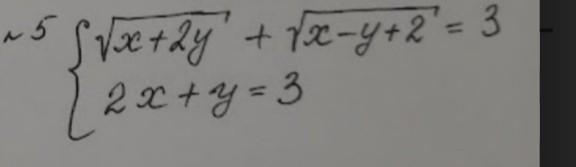 ~5 { √(x+2y) + √(x-y+2) = 3
2x + y = 3